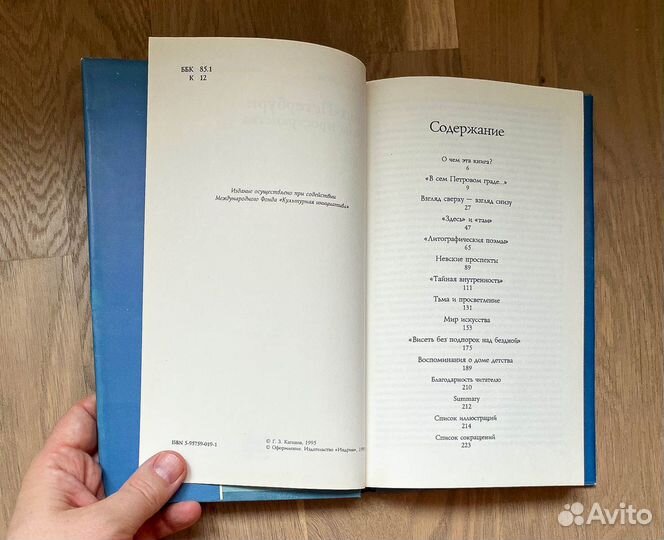 ББК 85.1
К 12
Издание осуществлено при содействии
Международного Фонда «Культурная инициатива»
ISBN 5-85759-019-1
© Г. З. Каганов, 1995
© Оформление. Издательство «Индрик»,
Содержание
О чем эта книга?
6
«В сем Петровом граде...»
9
Взгляд сверху — взгляд снизу
27
«Здесь» и «там»
47
«Литографические поэмы»
65
Невские проспекты
89
«Тайная внутренность»
111
Тьма и просветление
131
Мир искусства
153
«Висеть без подпорок над бездной»
175
Воспоминания о доме детства
189
Благодарность читателю
210
Summary
212
Список иллюстраций
214
Список сокращений
223
Avito